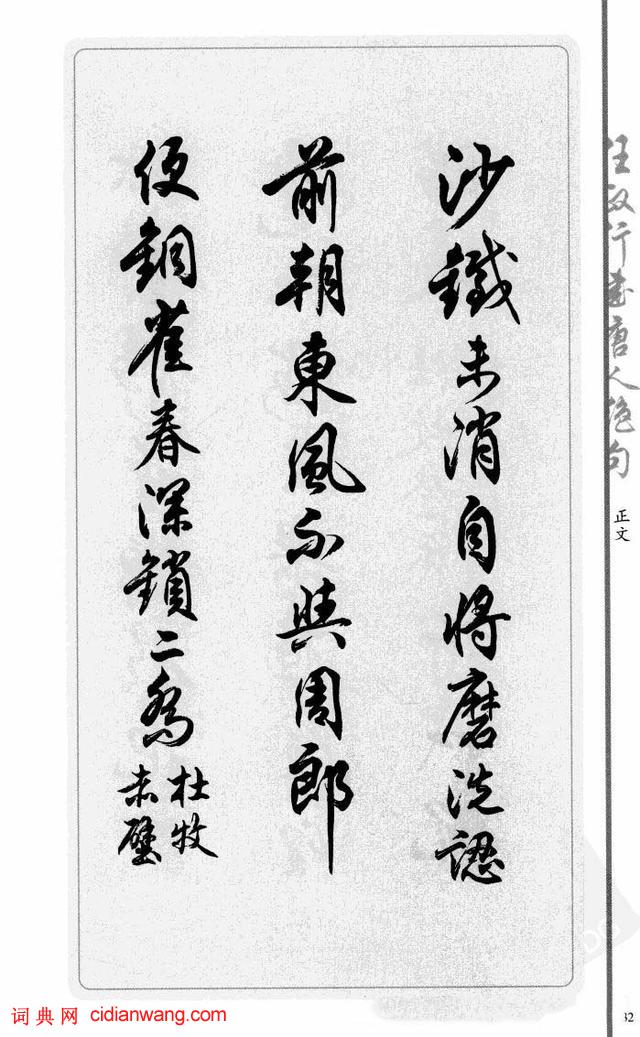 任政行書唐人绝句
正文
沙鐵未消自將磨洗認
前朝東風不與周郎
便銅雀春深鎖二喬
杜牧
赤壁
词典网 cidianwang.com